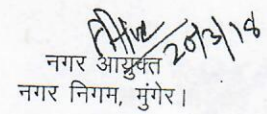 20/3/18
नगर आयुक्त
नगर निगम, मुंगेर।